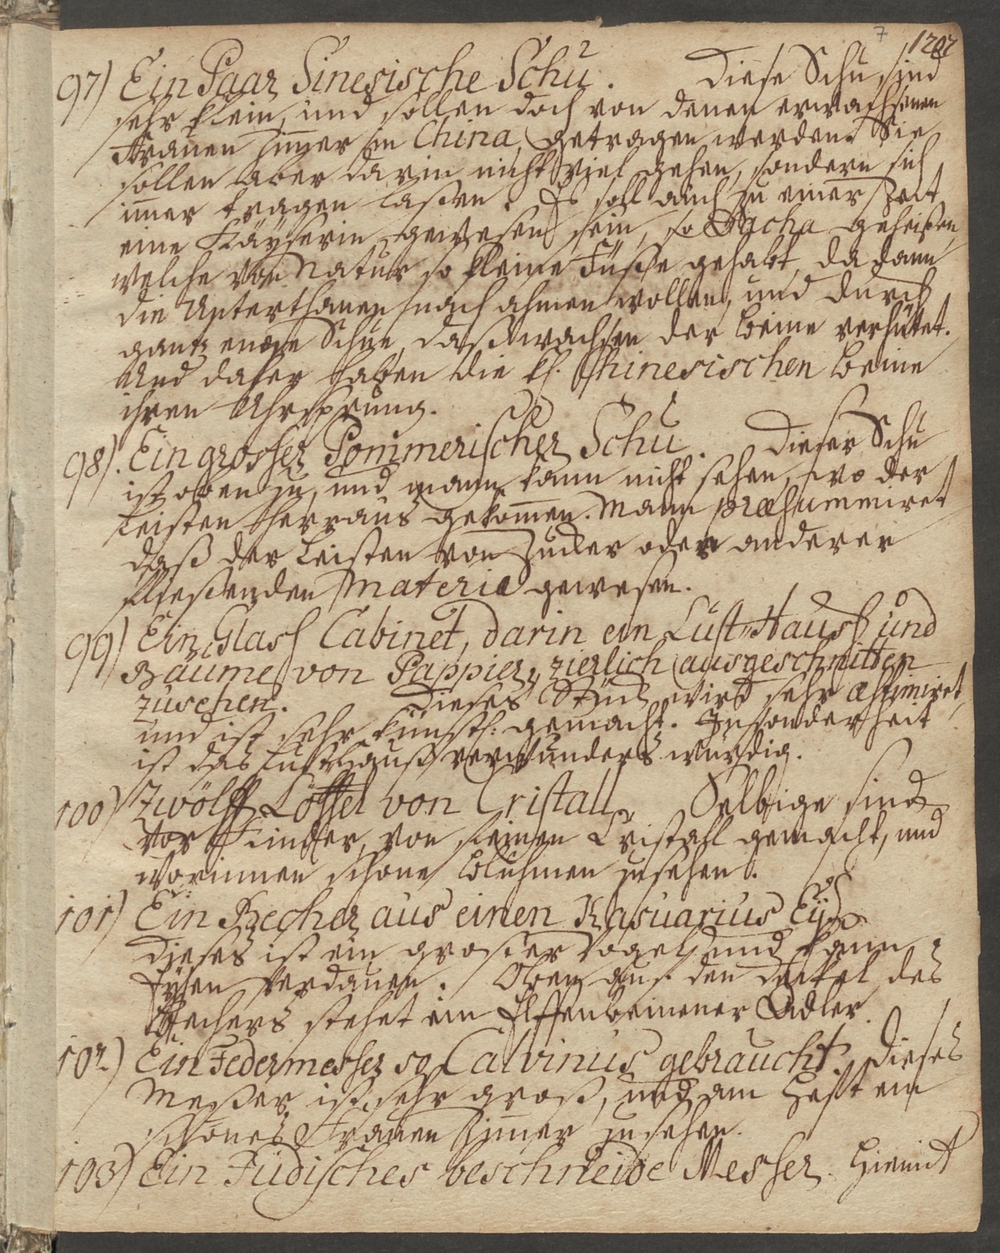 7
1202
97) Ein Paar Sinesische Schu. Diese Schu sind
sehr klein, und sollen doch von denen erwachsenen
Frauen Zimer in China, getragen werden. Sie
sollen aber darin nicht viel gehen, sondern sich
imer tragen laßen. Es soll auch zu einer Zeit
eine Käyserin gewesen sein, so Pacha geheißen,
welche von Natur so kleine Füße gehabt, da dann
die Unterthanen nach ahmen wollen, und durch
gantz enge Schue, daß wachsen der Beine verhütet.
Und daher haben die kl. Chinesischen Beine
ihren Uhrsprung.
98). Ein grosser Pommerischer Schu. Dieser Schu
ist oben zu, und mann kann nicht sehen, wo der
Leisten herraus gekomen. Mann præsummiret
daß der Leisten von Zucker oder anderer
fliessenden Materie gewesen.
99) Ein Glass Cabinet, darin ein Lust-Hauss und
Bäume von Pappier, zierlich ausgeschnitten
zusehen. Dieses Stück wird sehr æstimiret,
und ist sehr künstl. gemacht. Insonderheit
ist das Lusthauß verwunderns würdig.
100) Zwölff Löffel von Cristall. Selbige sind
vor Kinder, von feinen Cristall gemacht, und
worinnen schöne Bluhmen zusehen.
101) Ein Becher aus einen Kasuarius Ey.
Dieses ist ein grosser Vogel, und kann
Eysen verdauen. Oben auf den Deckel des
Bechers stehet ein Elffenbeinener Adler.
102) Ein Federmesser so Calvinus gebraucht. Dieses
Meßer ist sehr groß, und am Hefft ein
schönes Frauen Zimer zusehen.
103) Ein Jüdisches beschneide Messer. Hiemit